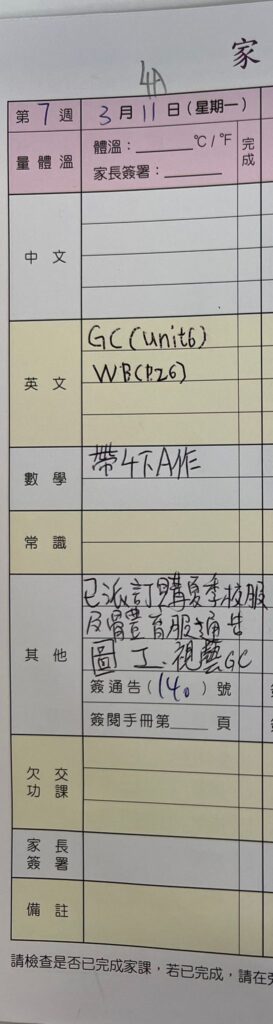 4A
家
第7週 3月11日(星期一)
量體溫 體溫:______℃/℉ 完成
家長簽署:______
中文
英文 GC(unit6)
WB(P.26)
數學 帶4下A作
常識
其他 已派訂購夏季校服
及體育服通告
圖 工、視藝GC
簽通告(14。)號
簽閱手冊第____頁
欠交功課
家長簽署
備註
請檢查是否已完成家課,若已完成,請在